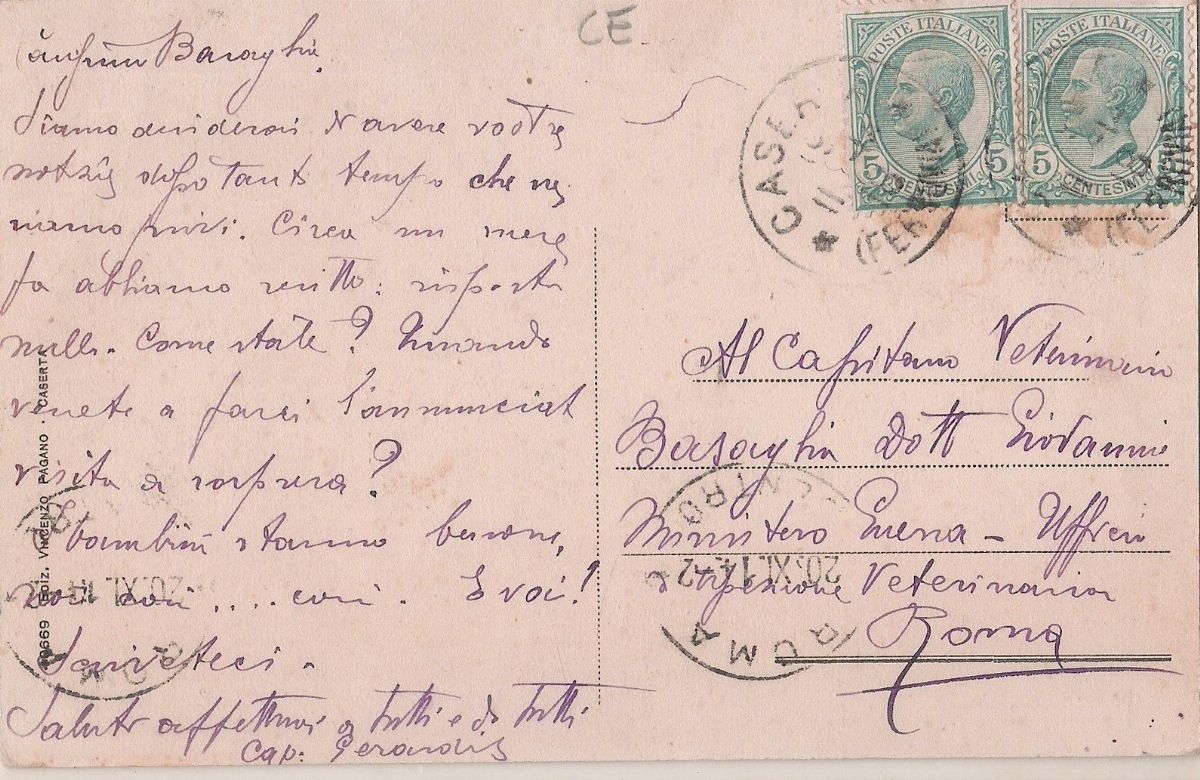 CE
Basaglia,
Siamo desiderosi d'avere vostre
notizie dopo tanto tempo che ne
siamo privi. Circa un mese
fa abbiamo scritto: risposta
nulla. Come state? Quando
venete a farci l'annunciat
visita a sorpresa?
I bambini stanno benone,
noi così .... così. E voi!
Scriveteci.
Saluti affettuosi a tutti e da tutti
Cap:
Ediz. VINCENZO PAGANO - CASERTA
POSTE ITALIANE
5 CENTESIMI 5
POSTE ITALIANE
5 CENTESIMI 5
CASER
(FERROVIA)
(FERROVIA)
Al Capitano Veterinario
Basaglia Dott Giovanni
Ministero Guerra - Ufficio
Ispezione Veterinaria
Roma
ROMA CENTRO
20.XI.14
ROMA
20.XI.14